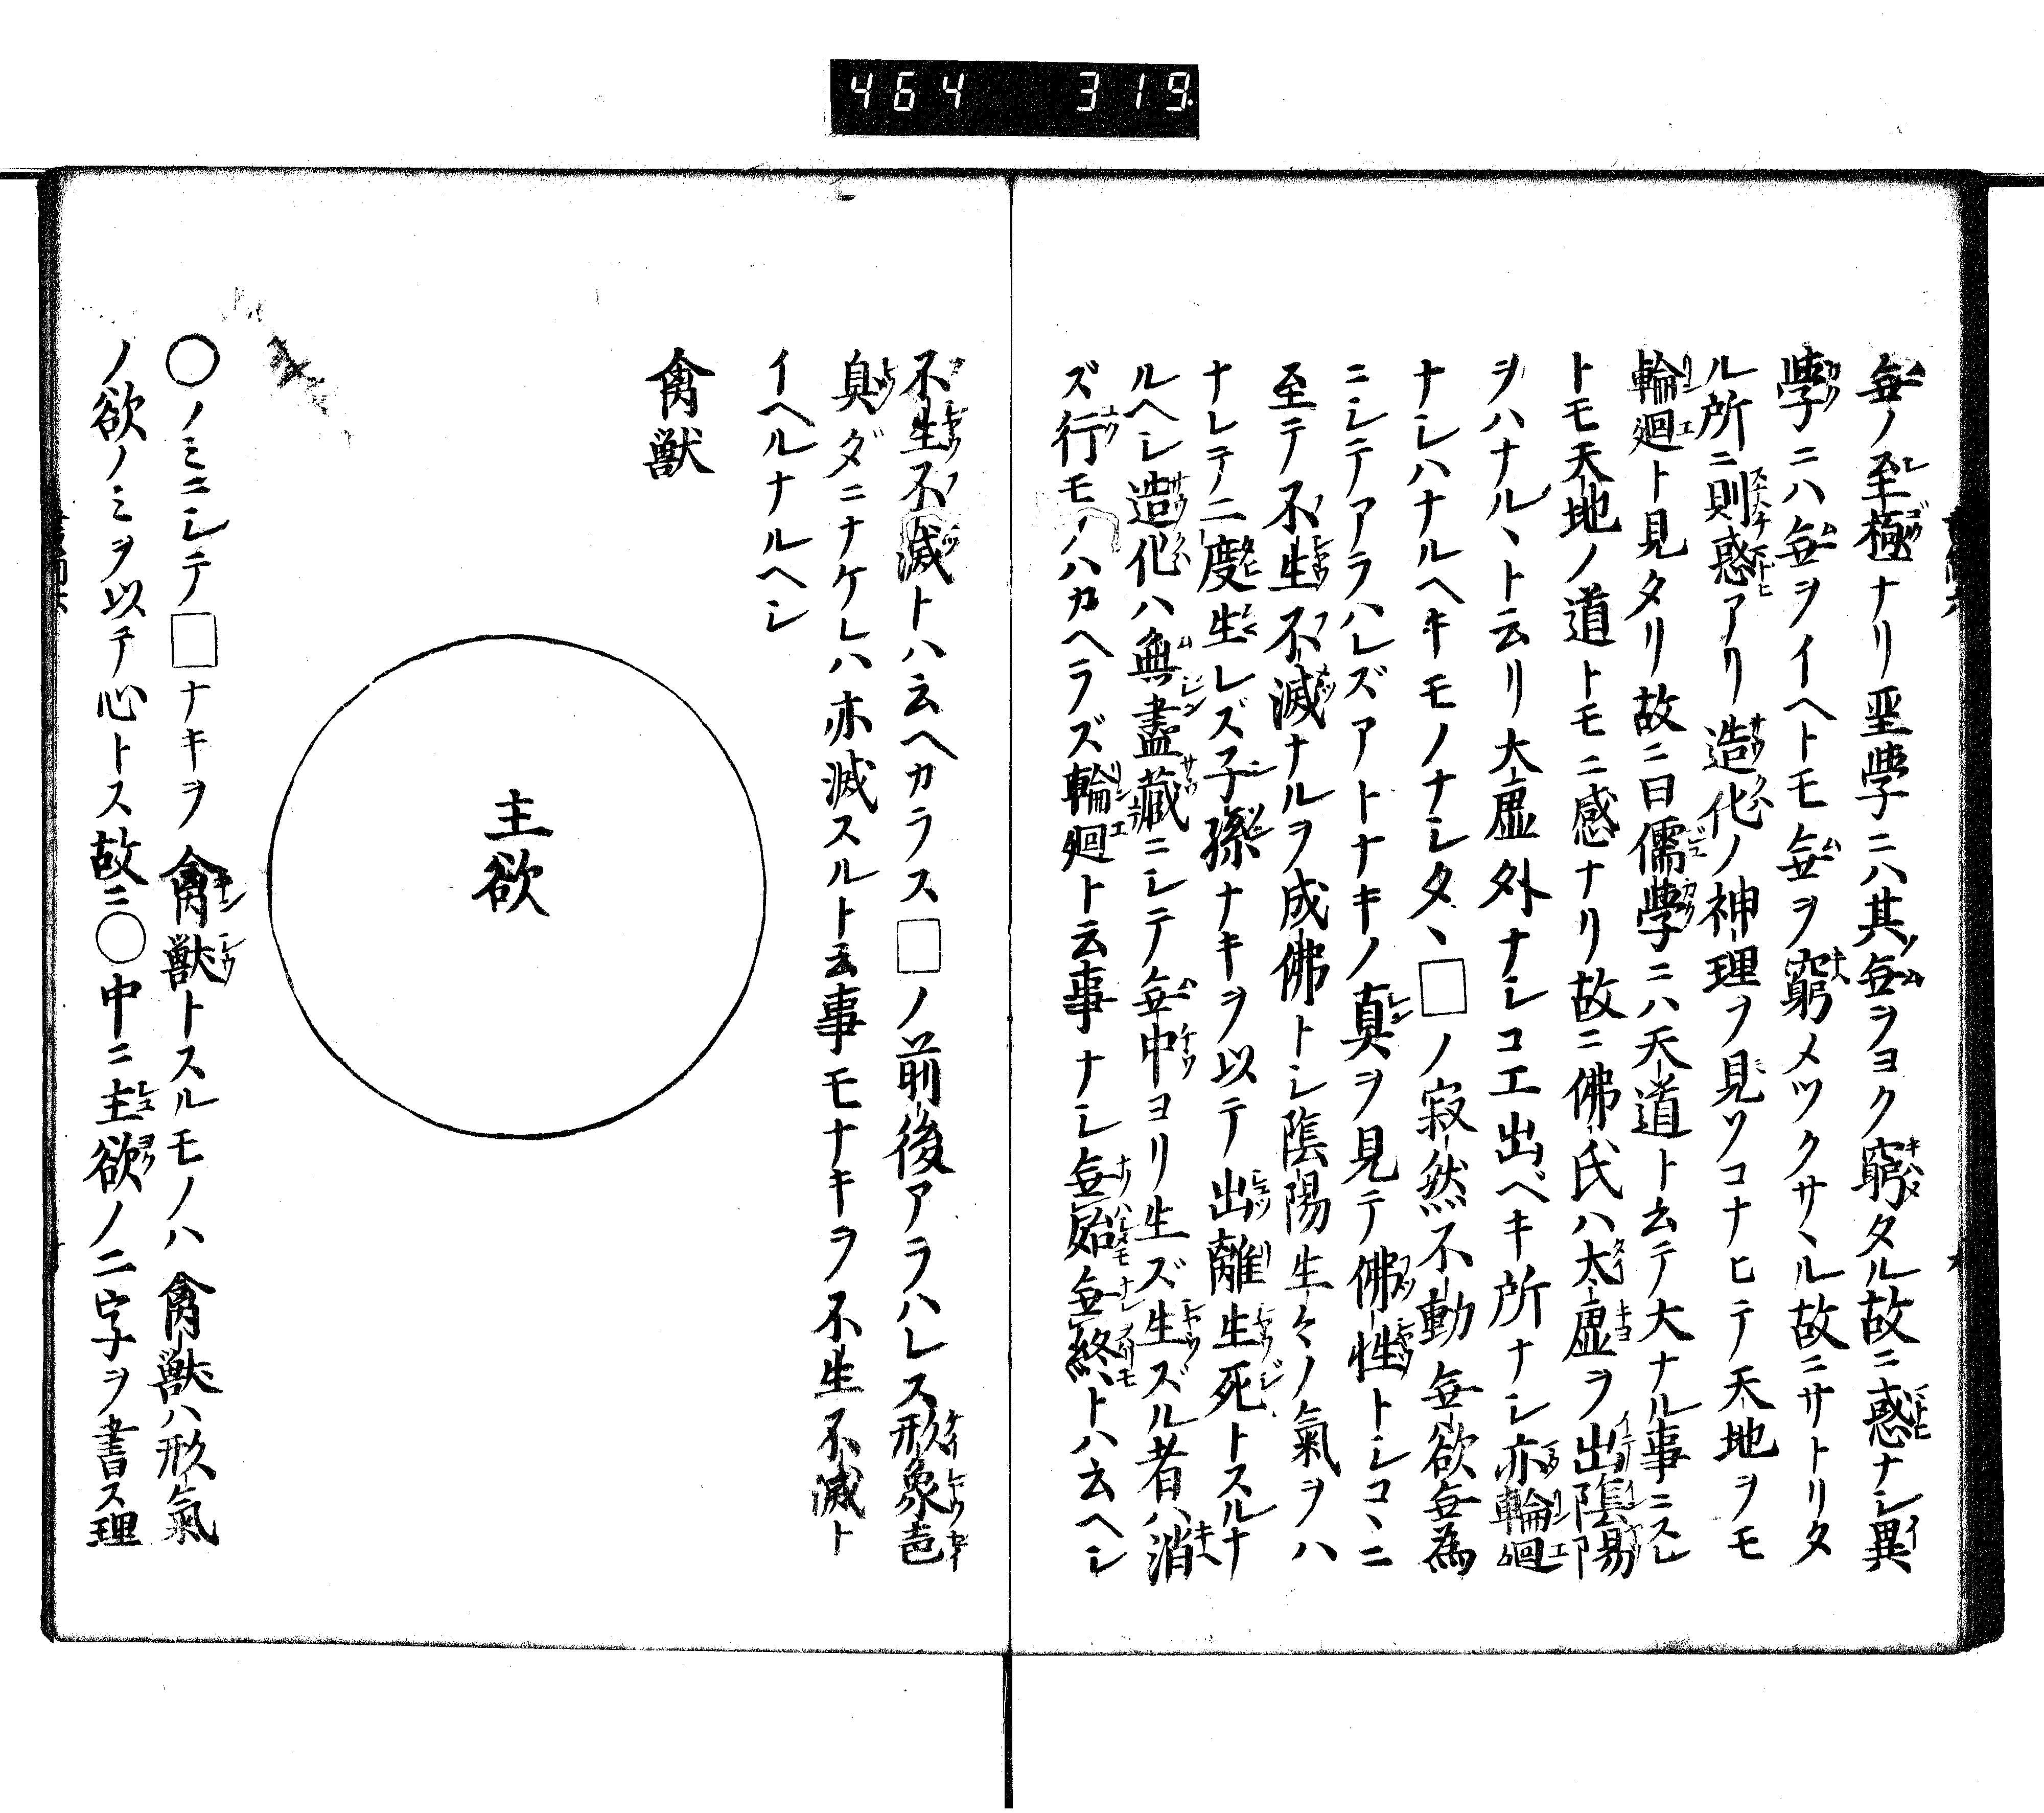 464 319
無ノ至極ナリ聖學ニハ其無ヲヨク窮タル故ニ惑ナシ異
學ニハ無ヲイヘトモ無ヲ窮メツクサヽル故ニサトリタ
ル所ニ則惑アリ造化ノ神理ヲ見ソコナヒテ天地ヲモ
輪廻ト見タリ故ニ曰儒學ニハ天道ト云テ大ナル事ニスレ
トモ天地ノ道トモニ惑ナリ故ニ佛氏ハ太虚ヲ出陰陽
ヲハナルヽト云リ大虚外ナシコエ出ベキ所ナシ亦輪廻
ナシハナルヘキモノナシタヽ□ノ寂然不動無欲無為
ニシテアラハレズアトナキノ真ヲ見テ佛性トシコヽニ
至テ不生不滅ナルヲ成佛トシ陰陽生々ノ氣ヲハ
ナレテ二度生レズ子孫ナキヲ以テ出離生死トスルナ
ルヘシ造化ハ無盡藏ニシテ無中ヨリ生ズ生ズル者ハ消
ズ行モノハカヘラズ輪廻ト云事ナシ無始無終トハ云ヘシ
不生不滅トハ云ヘカラス□ノ前後アラハレス形象色
臭ダニナケレハ亦滅スルト云事モナキヲ不生不滅ト
イヘルナルヘシ
禽獣
主欲
○ノミニシテ□ナキヲ禽獣トスルモノハ禽獣ハ形氣
ノ欲ノミヲ以テ心トス故ニ○中ニ主欲ノ二字ヲ書ス理